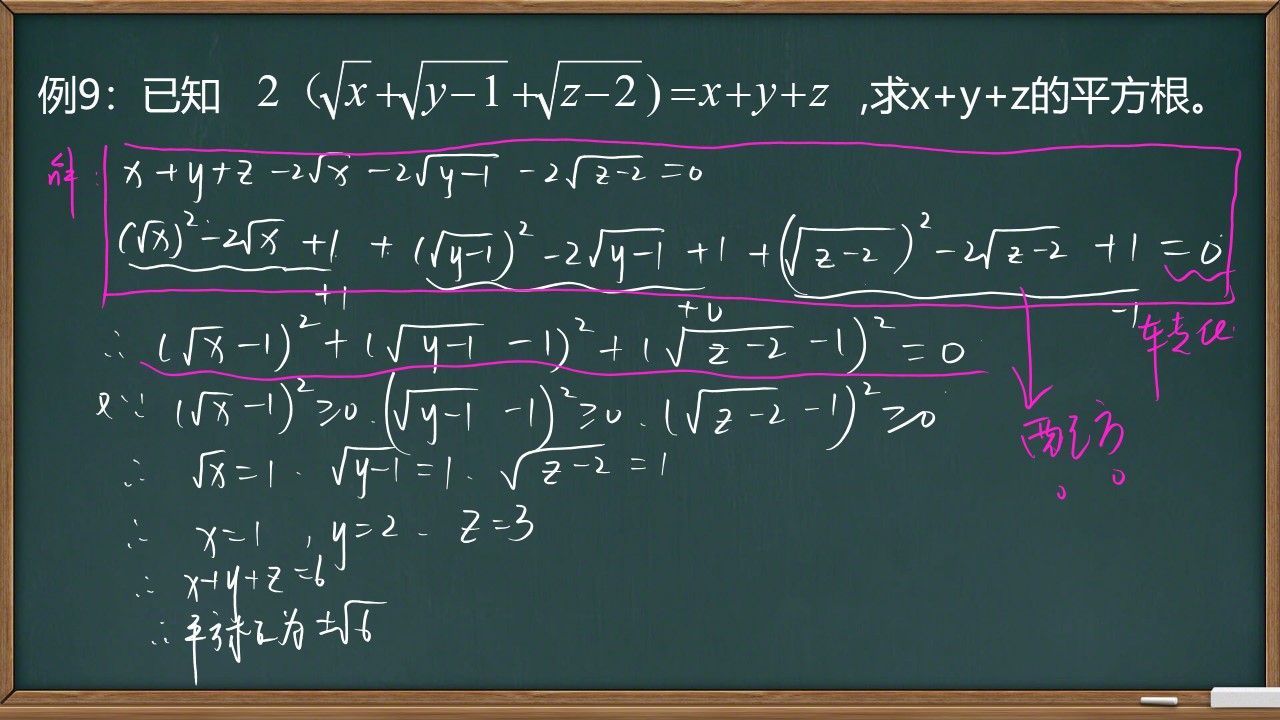 例9：已知 2（√x+√(y−1)+√(z−2)）=x+y+z ,求x+y+z的平方根。
解：x+y+z−2√x−2√(y−1)−2√(z−2)=0
(√x)²−2√x+1+(√(y−1))²−2√(y−1)+1+(√(z−2))²−2√(z−2)+1=0
+1 +0 −1
∴ (√x−1)²+(√(y−1)−1)²+(√(z−2)−1)²=0
转化
又∵ (√x−1)²≥0.(√(y−1)−1)²≥0.(√(z−2)−1)²≥0
配方
∴ √x=1.√(y−1)=1.√(z−2)=1
∴ x=1,y=2.z=3
∴ x+y+z=6
∴平方根为±√6